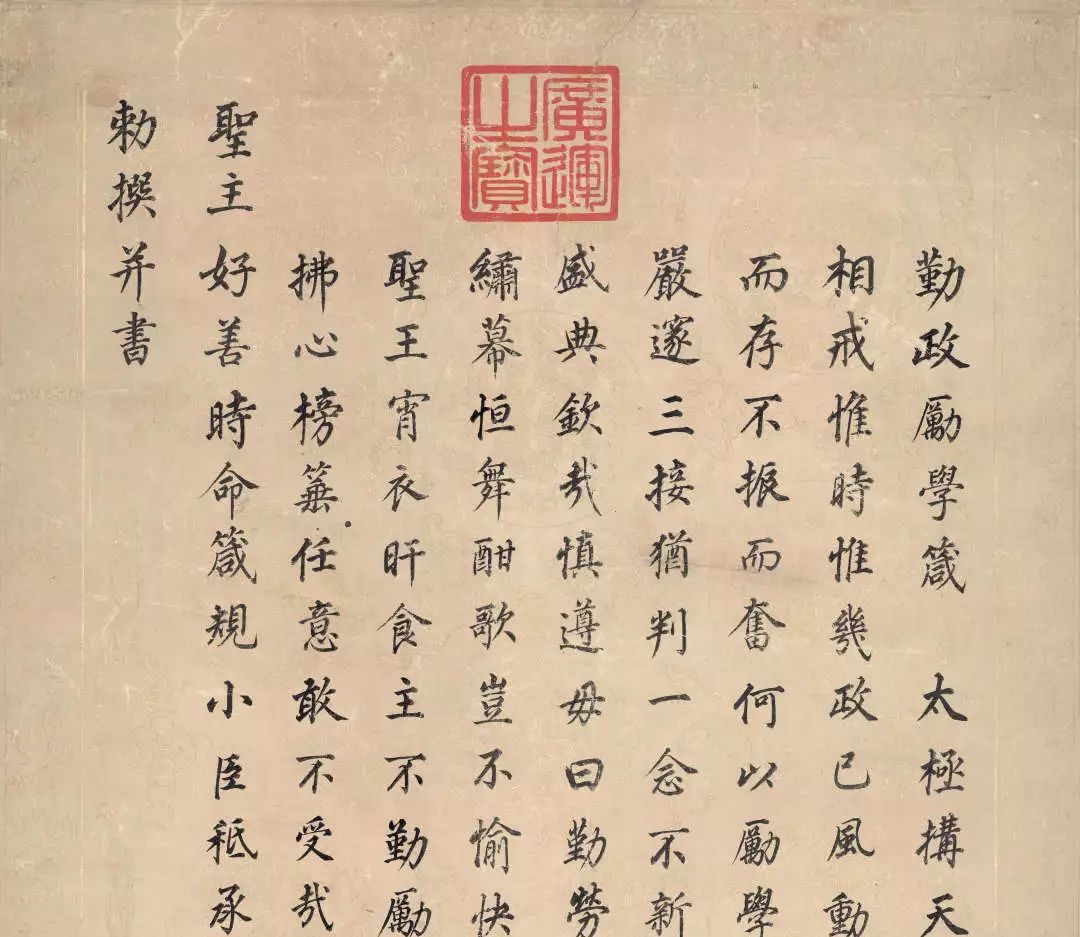 廣運之寶
勤政厲學箴 太極搆天
相戒惟時惟幾政已風動
而存不振而奮何以厲學
嚴邃三接猶判一念不新
盛典欽哉慎遵毋曰勤勞
繡幕恒舞酣歌豈不愉快
聖王宵衣旰食主不勤勵
拂心榜箠任意敢不受哉
聖主好善時命箴規小臣秪承
勅撰并書